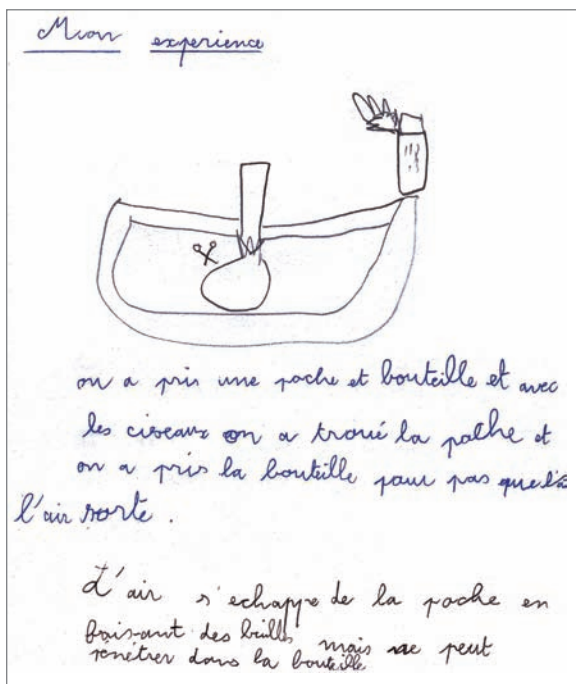 Mon experience
on a pris une poche et bouteille et avec
les ciseaux on a troué la palhe et
on a pris la bouteille pour pas que l'ai
l'air sorte.
L'air s'echappe de la poche en
faisant des bulles mais ne peut
rénétrer dans la bouteille